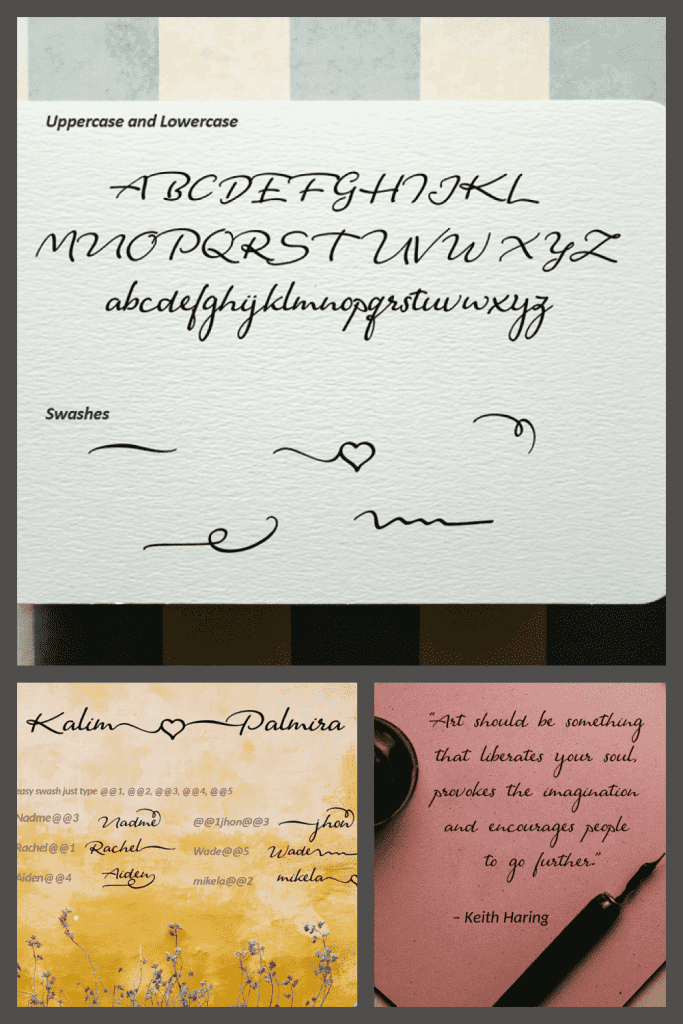 Uppercase and Lowercase
ABCDEFGHIJKL
MNOPQRSTUVWXYZ
abcdefghijklmnopqrstuvwxyz
Swashes
Kalim Palmira
easy swash just type @@1, @@2, @@3, @@4, @@5
Nadme@@3 Nadme @@1jhon@@3 jhon
Rachel@@1 Rachel Wade@@5 Wade
Aiden@@4 Aiden mikela@@2 mikela
"Art should be something
that liberates your soul,
provokes the imagination
and encourages people
to go further."
– Keith Haring